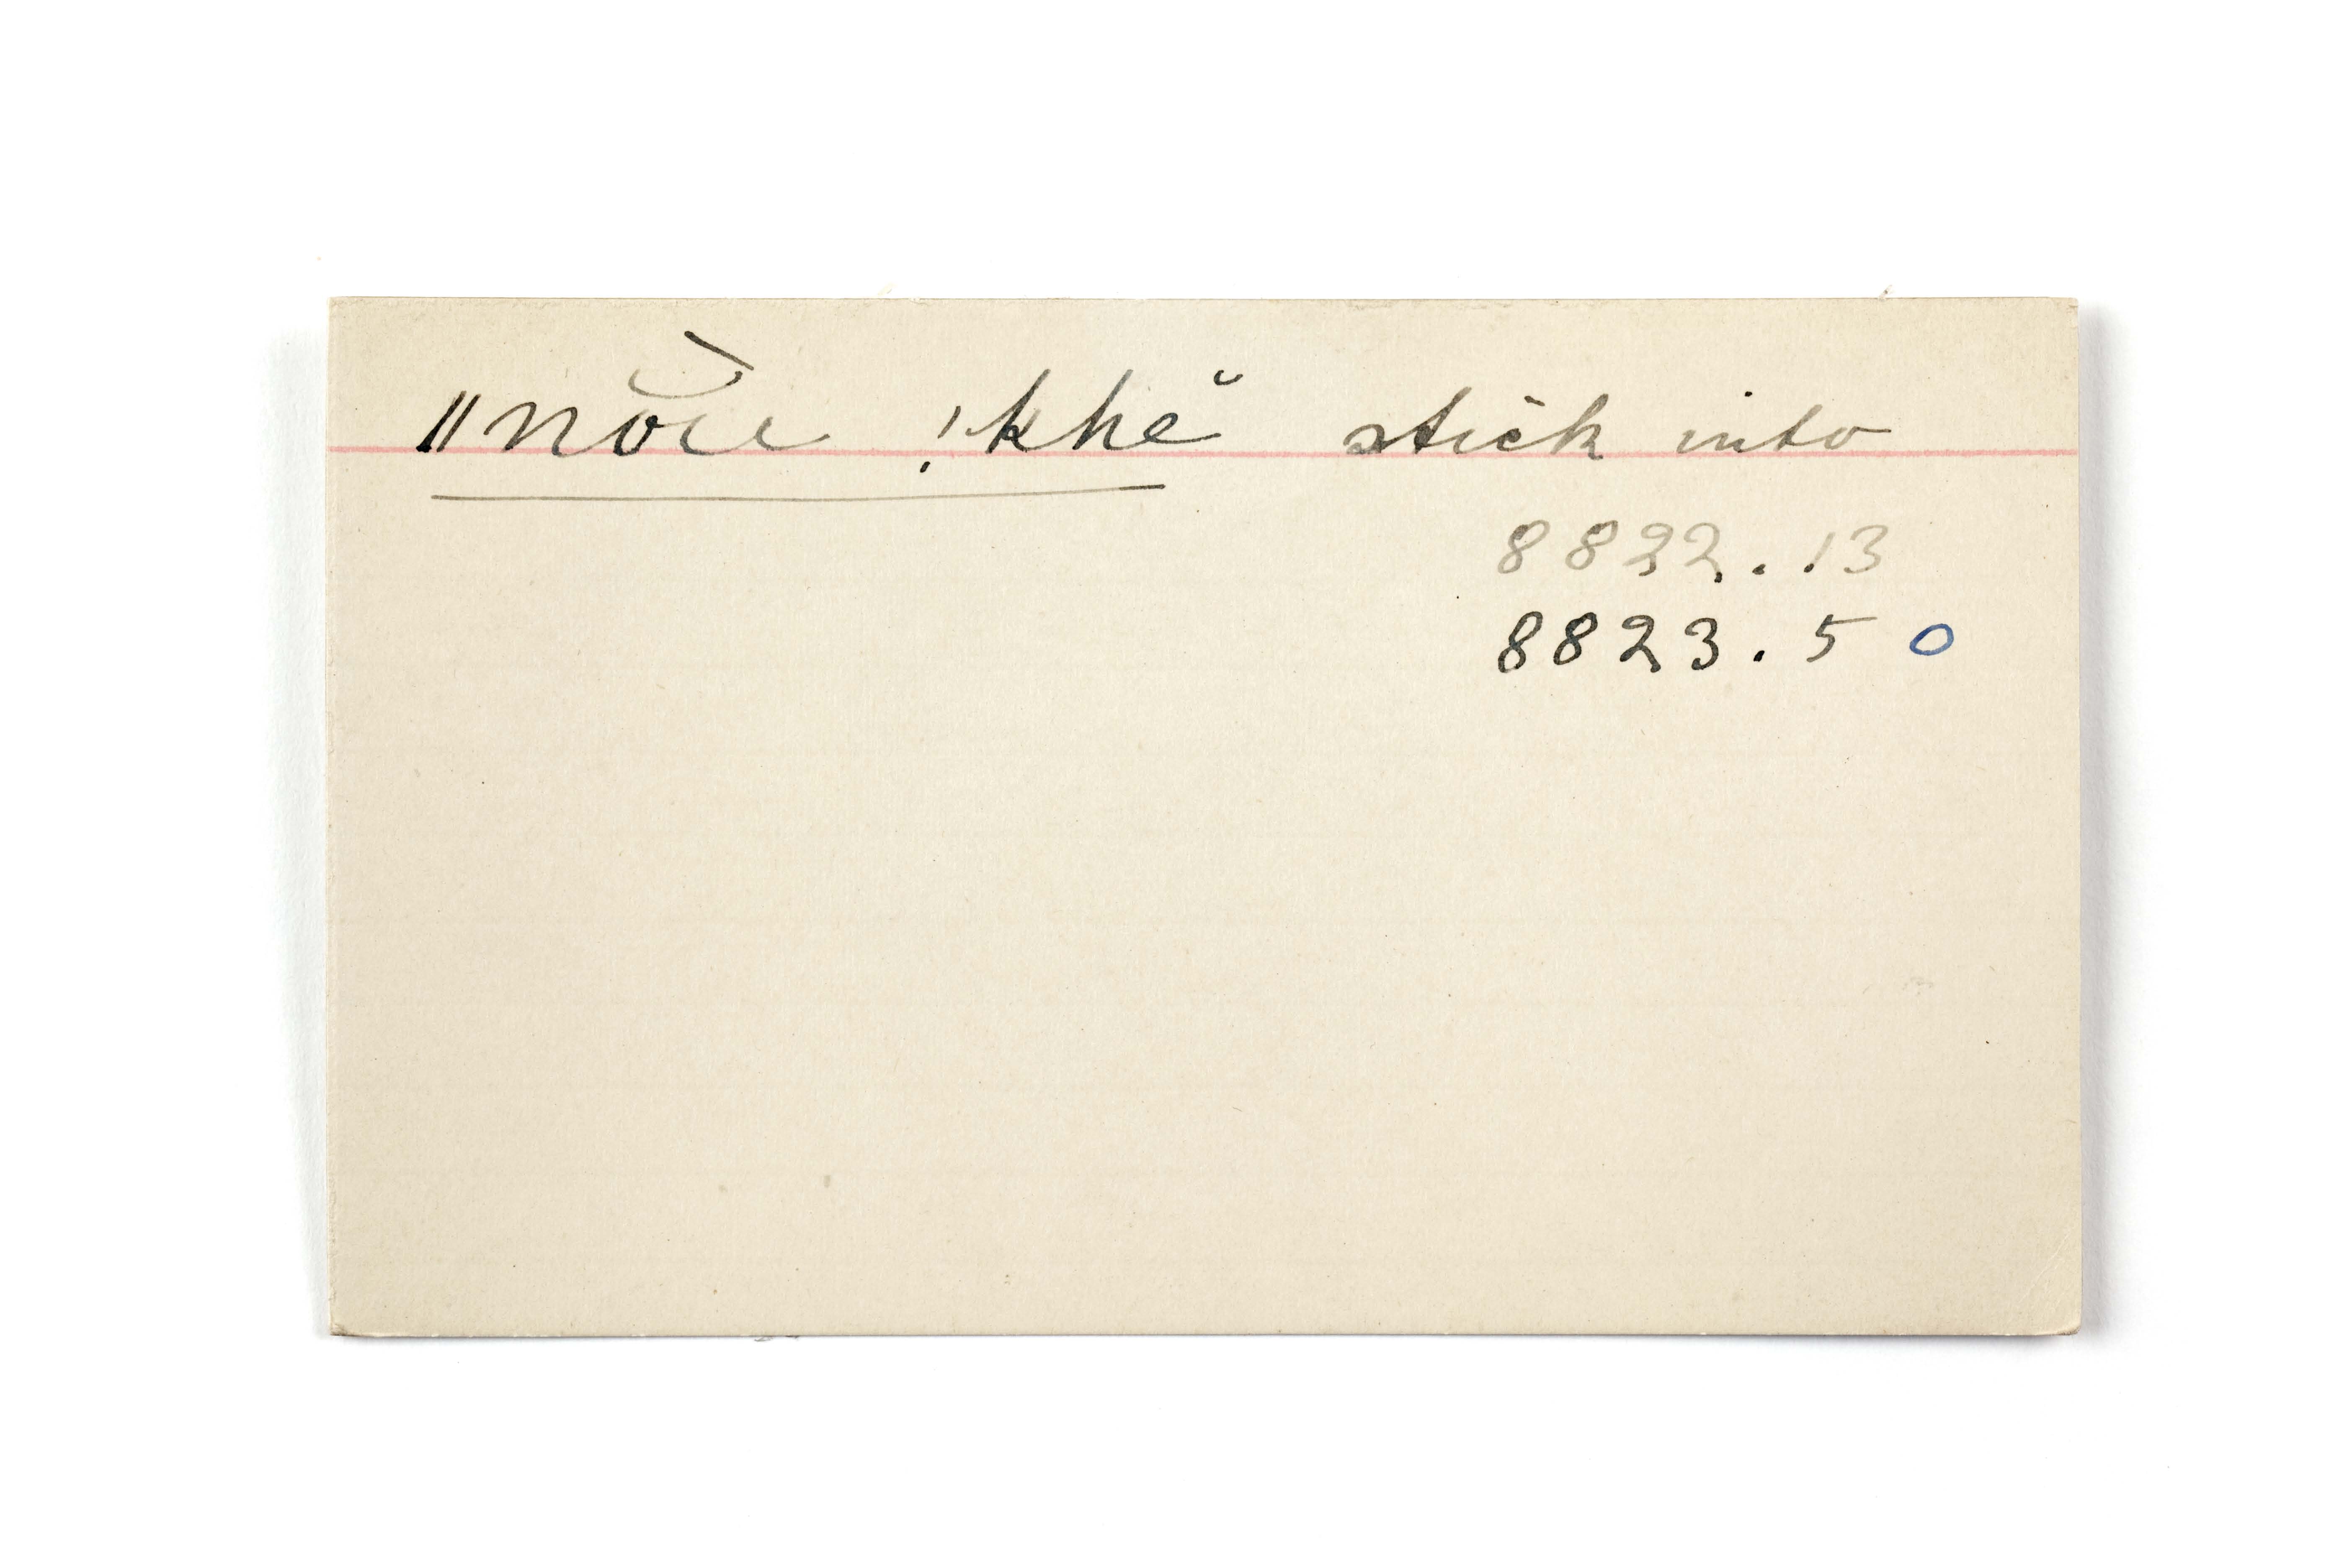 ǁnŏ̀ıı !khĕ stick into
8822.13
8823.5 0